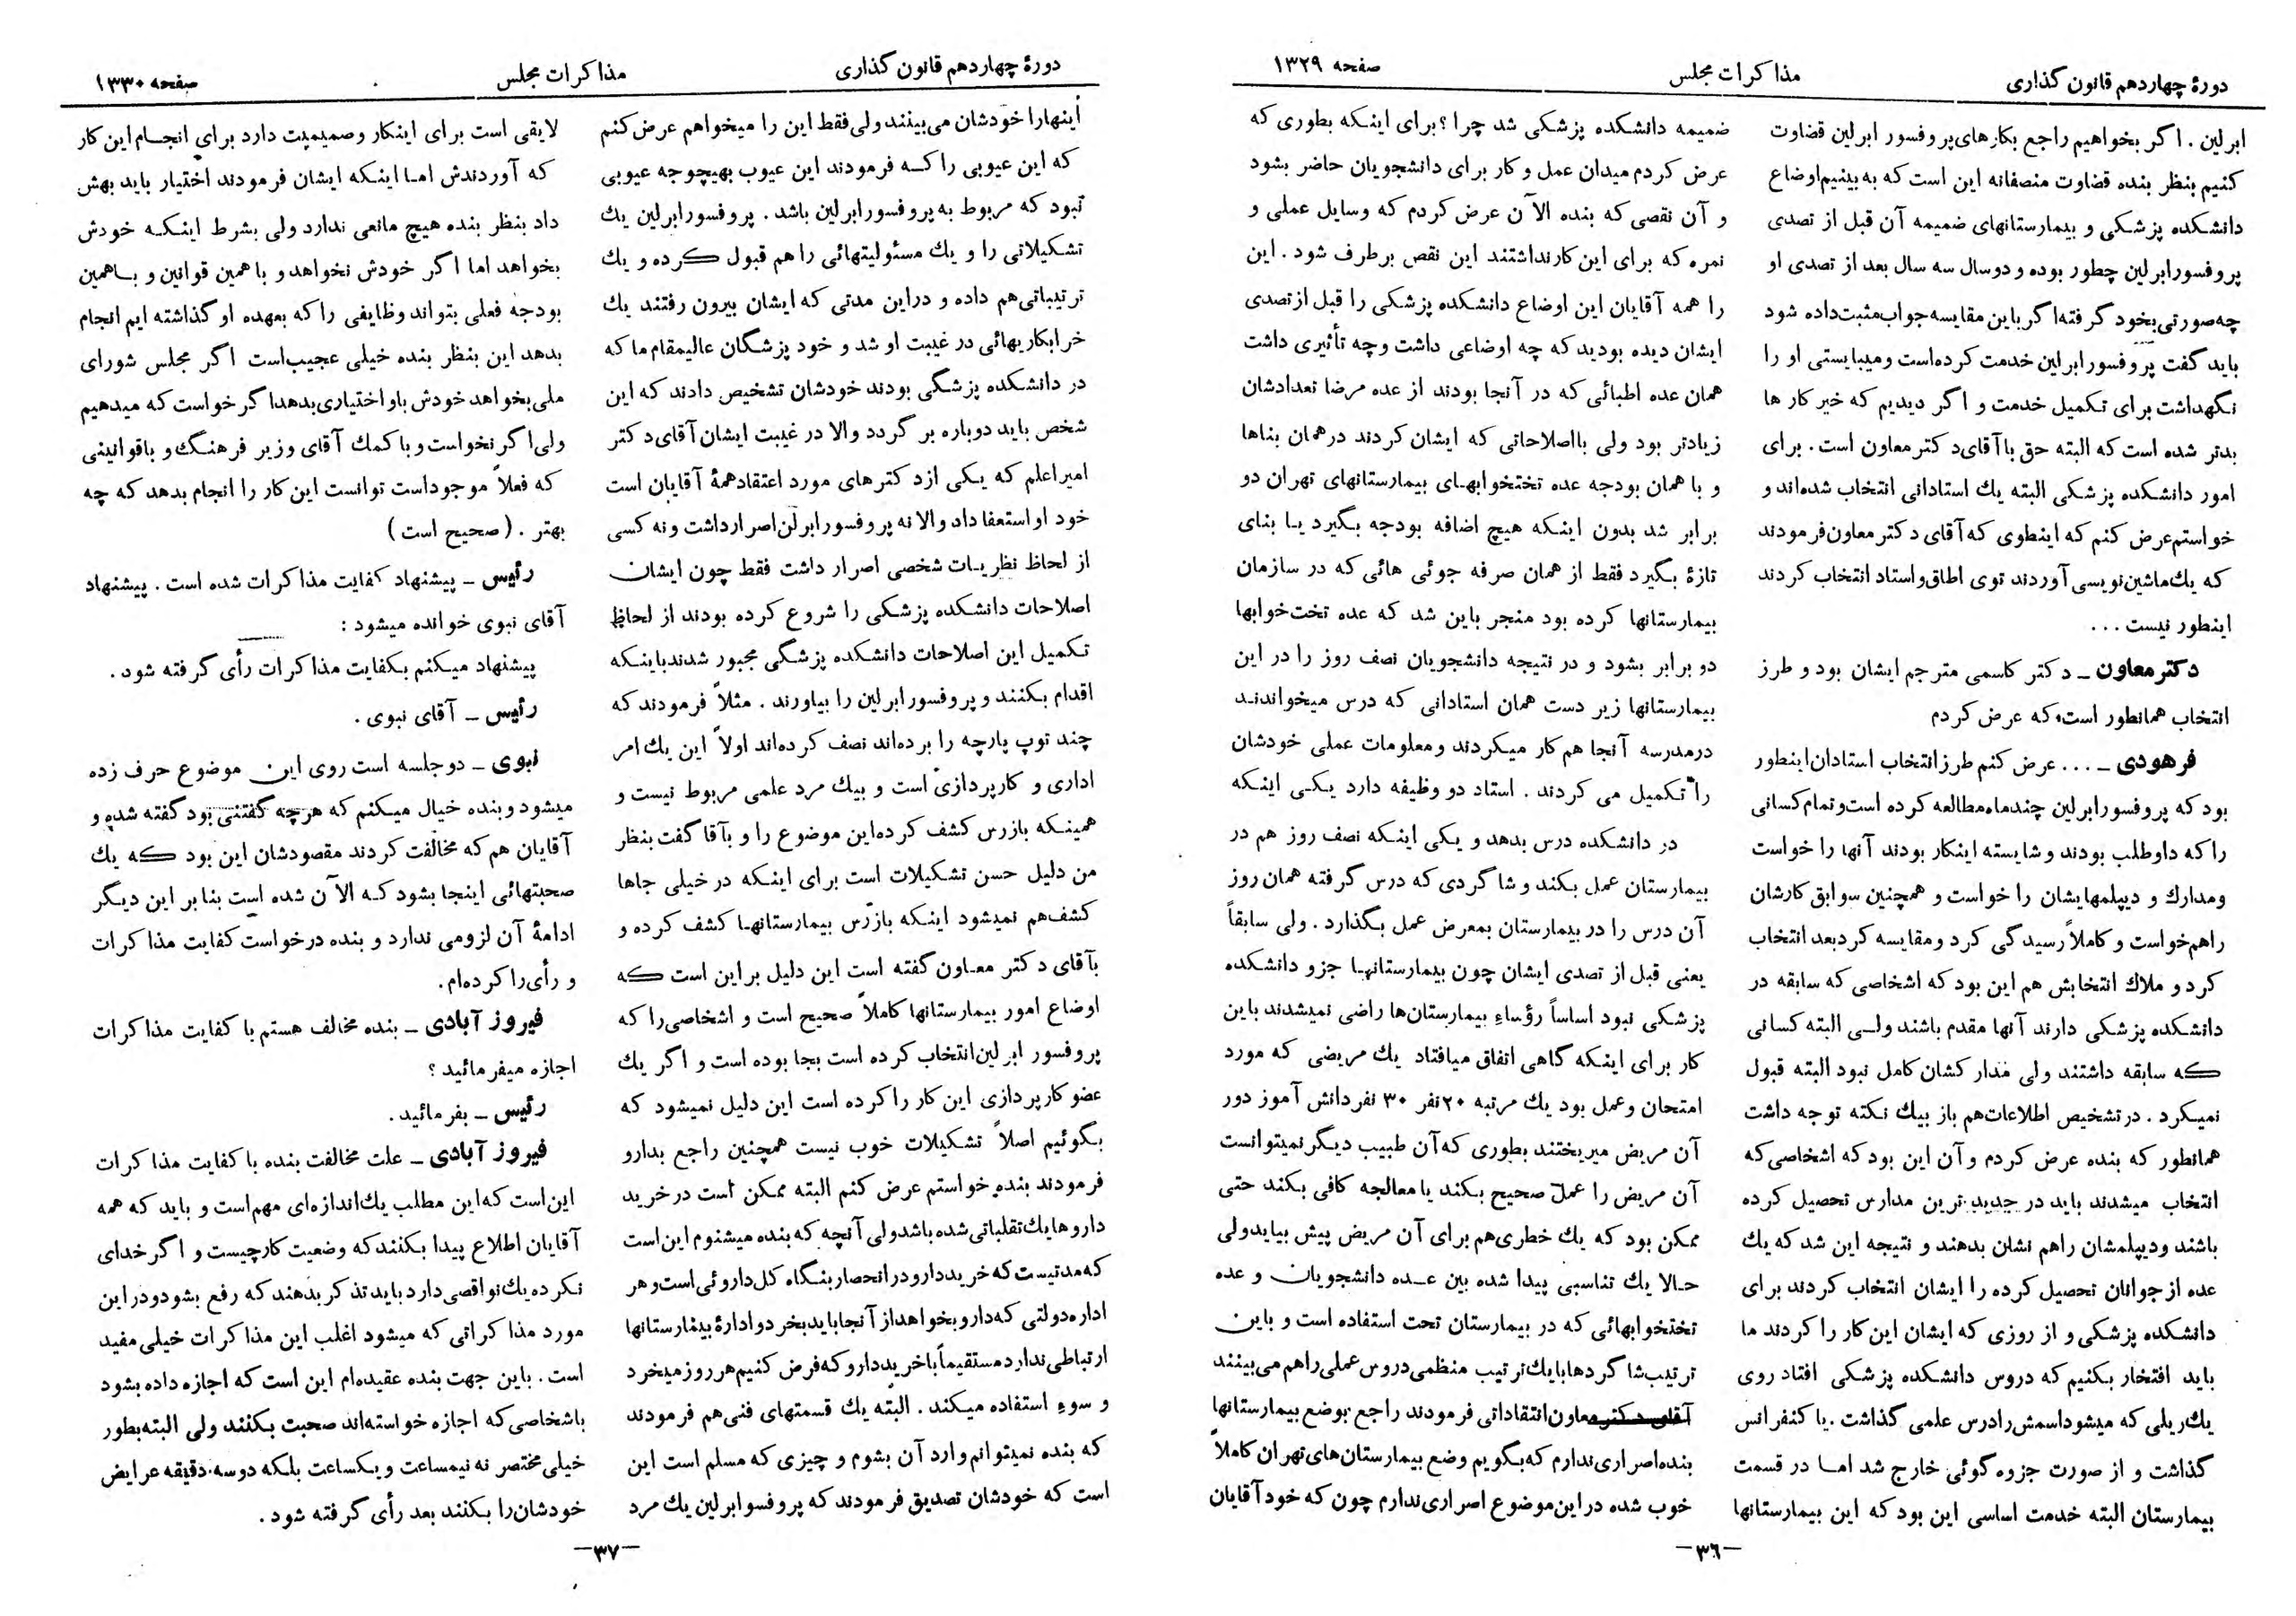 دورهٔ چهاردهم قانون گذاری
مذاکرات مجلس
صفحه ۱۳۲۹
ابرلین . اگر بخواهیم راجع بکارهای پروفسور ابرلین قضاوت
کنیم بنظر بنده قضاوت منصفانه این است که به بینیم اوضاع
دانشکده پزشکی و بیمارستانهای ضمیمه آن قبل از تصدی
پروفسور ابرلین چطور بوده و دو سال سه سال بعد از تصدی او
چه صورتی بخود گرفته اگر باین مقایسه جواب مثبت داده شود
باید گفت پروفسور ابرلین خدمت کرده است و میبایستی او را
نگهداشت برای تکمیل خدمت و اگر دیدیم که خیر کار ها
بدتر شده است که البته حق با آقای دکتر معاون است . برای
امور دانشکده پزشکی البته یك استادانی انتخاب شده‌اند و
خواستم عرض کنم که اینطوی که آقای دکتر معاون فرمودند
که یك ماشین نویسی آوردند توی اطاق و استاد انتخاب کردند
اینطور نیست ...
دکتر معاون ــ دکتر کاسمی مترجم ایشان بود و طرز
انتخاب همانطور است که عرض کردم
فرهودی ــ ... عرض کنم طرز انتخاب استادان اینطور
بود که پروفسور ابرلین چند ماه مطالعه کرده است و تمام کسانی
را که داوطلب بودند و شایسته اینکار بودند آنها را خواست
و مدارك و دیپلمهایشان را خواست و همچنین سوابق کارشان
را هم خواست و کاملاً رسیدگی کرد و مقایسه کرد بعد انتخاب
کرد و ملاك انتخابش هم این بود که اشخاصی که سابقه در
دانشکده پزشکی دارند آنها مقدم باشند ولی البته کسانی
که سابقه داشتند ولی مدارکشان کامل نبود البته قبول
نمیکرد . در تشخیص اطلاعات هم باز بیك نکته توجه داشت
همانطور که بنده عرض کردم و آن این بود که اشخاصی که
انتخاب میشدند باید در جدیدترین مدارس تحصیل کرده
باشند و دیپلمشان را هم نشان بدهند و نتیجه این شد که یك
عده از جوانان تحصیل کرده را ایشان انتخاب کردند برای
دانشکده پزشکی و از روزی که ایشان این کار را کردند ما
باید افتخار بکنیم که دروس دانشکده پزشکی افتاد روی
یك ریلی که میشود اسمش را درس علمی گذاشت . یا کنفرانس
گذاشت و از صورت جزوه گوئی خارج شد اما در قسمت
بیمارستان البته خدمت اساسی این بود که این بیمارستانها
ضمیمه دانشکده پزشکی شد چرا ؟ برای اینکه بطوری که
عرض کردم میدان عمل و کار برای دانشجویان حاضر بشود
و آن نقصی که بنده الآن عرض کردم که وسایل عملی و
نمره که برای این کار نداشتند این نقص برطرف شود . این
را همه آقایان این اوضاع دانشکده پزشکی را قبل از تصدی
ایشان دیده بودید که چه اوضاعی داشت و چه تأثیری داشت
همان عده اطبائی که در آنجا بودند از عده مرضا تعدادشان
زیادتر بود ولی با اصلاحاتی که ایشان کردند در همان بناها
و با همان بودجه عده تختخوابهای بیمارستانهای تهران دو
برابر شد بدون اینکه هیچ اضافه بودجه بگیرد یا بنای
تازهٔ بگیرد فقط از همان صرفه جوئی هائی که در سازمان
بیمارستانها کرده بود منجر باین شد که عده تخت خوابها
دو برابر بشود و در نتیجه دانشجویان نصف روز را در این
بیمارستانها زیر دست همان استادانی که درس میخواندند
در مدرسه آنجا هم کار میکردند و معلومات عملی خودشان
را تکمیل می کردند . استاد دو وظیفه دارد یکی اینکه
در دانشکده درس بدهد و یکی اینکه نصف روز هم در
بیمارستان عمل بکند و شاگردی که درس گرفته همان روز
آن درس را در بیمارستان بمعرض عمل بگذارد . ولی سابقاً
یعنی قبل از تصدی ایشان چون بیمارستانها جزو دانشکده
پزشکی نبود اساساً رؤساء بیمارستان‌ها راضی نمیشدند باین
کار برای اینکه گاهی اتفاق میافتاد یك مریضی که مورد
امتحان و عمل بود یك مرتبه ۲۰ نفر ۳۰ نفر دانش آموز دور
آن مریض میریختند بطوری که آن طبیب دیگر نمیتوانست
آن مریض را عمل صحیح بکند یا معالجه کافی بکند حتی
ممکن بود که یك خطری هم برای آن مریض پیش بیاید ولی
حالا یك تناسبی پیدا شده بین عده دانشجویان و عده
تختخوابهائی که در بیمارستان تحت استفاده است و باین
ترتیب شاگردها بایك ترتیب منظمی دروس عملی را هم می بینند
آقای دکتر معاون انتقاداتی فرمودند راجع بوضع بیمارستانها
بنده اصراری ندارم که بگویم وضع بیمارستان‌های تهران کاملاً
خوب شده در این موضوع اصراری ندارم چون که خود آقایان
ــ۳۶ــ
دورهٔ چهاردهم قانون گذاری
مذاکرات مجلس
صفحه ۱۳۳۰
اینهارا خودشان می بینند ولی فقط این را میخواهم عرض کنم
که این عیوبی را که فرمودند این عیوب بهیچوجه عیوبی
نبود که مربوط به پروفسور ابرلین باشد . پروفسور ابرلین یك
تشکیلاتی را و یك مسئولیتهائی را هم قبول کرده و یك
ترتیباتی هم داده و در این مدتی که ایشان بیرون رفتند یك
خرابکاریهائی در غیبت او شد و خود پزشگان عالیمقام ما که
در دانشکده پزشگی بودند خودشان تشخیص دادند که این
شخص باید دوباره برگردد والا در غیبت ایشان آقای دکتر
امیراعلم که یکی از دکترهای مورد اعتقاد همهٔ آقایان است
خود او استعفا داد والا نه پروفسور ابرلن اصرار داشت و نه کسی
از لحاظ نظریات شخصی اصرار داشت فقط چون ایشان
اصلاحات دانشکده پزشکی را شروع کرده بودند از لحاظ
تکمیل این اصلاحات دانشکده پزشگی مجبور شدند باینکه
اقدام بکنند و پروفسور ابرلین را بیاورند . مثلاً فرمودند که
چند توپ پارچه را برده‌اند نصف کرده‌اند اولاً این یك امر
اداری و کارپردازی است و بیك مرد علمی مربوط نیست و
همینکه بازرس کشف کرده این موضوع را و بآقا گفت بنظر
من دلیل حسن تشکیلات است برای اینکه در خیلی جاها
کشف هم نمیشود اینکه بازرس بیمارستانها کشف کرده و
بآقای دکتر معاون گفته است این دلیل بر این است که
اوضاع امور بیمارستانها کاملاً صحیح است و اشخاصی را که
پروفسور ابرلین انتخاب کرده است بجا بوده است و اگر یك
عضو کارپردازی این کار را کرده است این دلیل نمیشود که
بگوئیم اصلاً تشکیلات خوب نیست همچنین راجع بدارو
فرمودند بنده خواستم عرض کنم البته ممکن است در خرید
داروها یك تقلباتی شده باشد ولی آنچه که بنده میشنوم این است
که مدتیست که خرید دارو در انحصار بنگاه کل داروئی است و هر
اداره دولتی که دارو بخواهد از آنجا باید بخرد و ادارهٔ بیمارستانها
ارتباطی ندارد مستقیماً با خرید دارو که فرض کنیم هر روز میخرد
و سوء استفاده میکند . البته یك قسمتهای فنی هم فرمودند
که بنده نمیتوانم وارد آن بشوم و چیزی که مسلم است این
است که خودشان تصدیق فرمودند که پروفسو ابرلین یك مرد
لایقی است برای اینکار و صمیمیت دارد برای انجام این کار
که آوردندش اما اینکه ایشان فرمودند اختیار باید بهش
داد بنظر بنده هیچ مانعی ندارد ولی بشرط اینکه خودش
بخواهد اما اگر خودش نخواهد و با همین قوانین و باهمین
بودجهٔ فعلی بتواند وظایفی را که بعهده او گذاشته ایم انجام
بدهد این بنظر بنده خیلی عجیب است اگر مجلس شورای
ملی بخواهد خودش باو اختیاری بدهد اگر خواست که میدهیم
ولی اگر نخواست و با کمك آقای وزیر فرهنگ و با قوانینی
که فعلاً موجود است توانست این کار را انجام بدهد که چه
بهتر . ( صحیح است )
رئیس ــ پیشنهاد کفایت مذاکرات شده است . پیشنهاد
آقای نبوی خوانده میشود :
پیشنهاد میکنم بکفایت مذاکرات رأی گرفته شود .
رئیس ــ آقای نبوی .
نبوی ــ دو جلسه است روی این موضوع حرف زده
میشود و بنده خیال میکنم که هرچه گفتنی بود گفته شده و
آقایان هم که مخالفت کردند مقصودشان این بود که یك
صحبتهائی اینجا بشود که الآن شده است بنابر این دیگر
ادامهٔ آن لزومی ندارد و بنده درخواست کفایت مذاکرات
و رأی را کرده‌ام.
فیروز آبادی ــ بنده مخالف هستم با کفایت مذاکرات
اجازه میفرمائید ؟
رئیس ــ بفرمائید .
فیروز آبادی ــ علت مخالفت بنده با کفایت مذاکرات
این است که این مطلب یك اندازه‌ای مهم است و باید که همه
آقایان اطلاع پیدا بکنند که وضعیت کار چیست و اگر خدای
نکرده یك نواقصی دارد باید تذکر بدهند که رفع بشود و در این
مورد مذاکراتی که میشود اغلب این مذاکرات خیلی مفید
است . باین جهت بنده عقیده‌ام این است که اجازه داده بشود
باشخاصی که اجازه خواسته‌اند صحبت بکنند ولی البته بطور
خیلی مختصر نه نیمساعت و یکساعت بلکه دو سه دقیقه عرایض
خودشان را بکنند بعد رأی گرفته شود .
ــ۳۷ــ